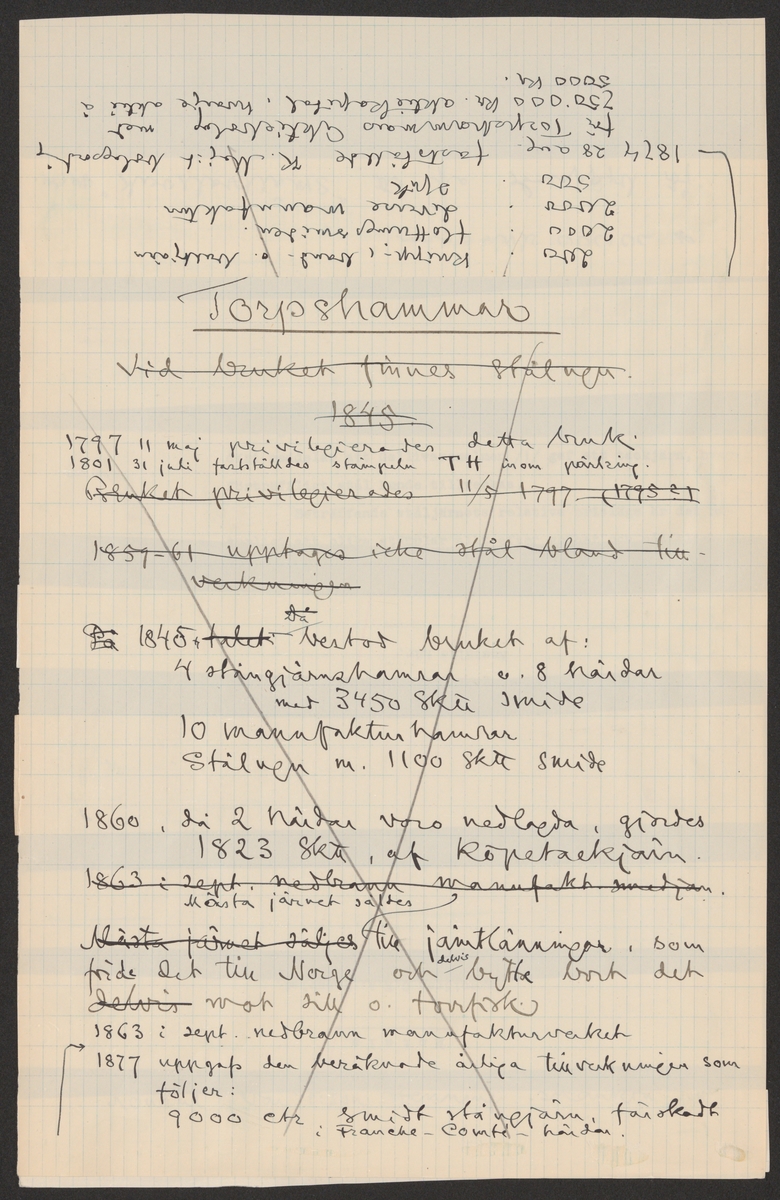 Torpshammar
Vid bruket finnes stålugn.
1845.
1797 11 maj privilegierades detta bruk.
1801 31 juli fastställdes stämpeln TH inom
Bruket privilegierades 11/5 1797 (1795?)
1859-61 upptages icke stål bland till-
verkningen
Då
På 1845 talet bestod bruket af:
4 stångjärnshamrar o. 8 härdar
med 3450 Sk℔ smide
10 manufakturhamrar
Stålugn m. 1100 Sk℔ smide
1860, då 2 härdar voro nedlagda, gjordes
1823 Sk℔, af köpetackjärn.
1863 i sept. nedbrann manufakt. smedjan.
Mästa järnet såldes
Mästa järnet säljes till jämtlänningar, som
delvis
förde det till Norge och bytte bort det
delvis mot sill o. torrfisk.
1863 i sept. nedbrann manufakturverket
1877 uppgafs den beräknade årliga tillverkningen som
följer:
9000 ctr smidt stångjärn, färskadt
i Franche-Comté-härdar.
2000 " knipp-, band- o. bultjärn
2000 " flottningssmiden.
2000 " diverse manufaktur
500 " spik
1874 28 aug. fastställde K. Maj:t bolagsordn.
för Torpshammars Aktiebolag med
750'000 kr. aktiekapital, hvarje aktie à
5000 kr.